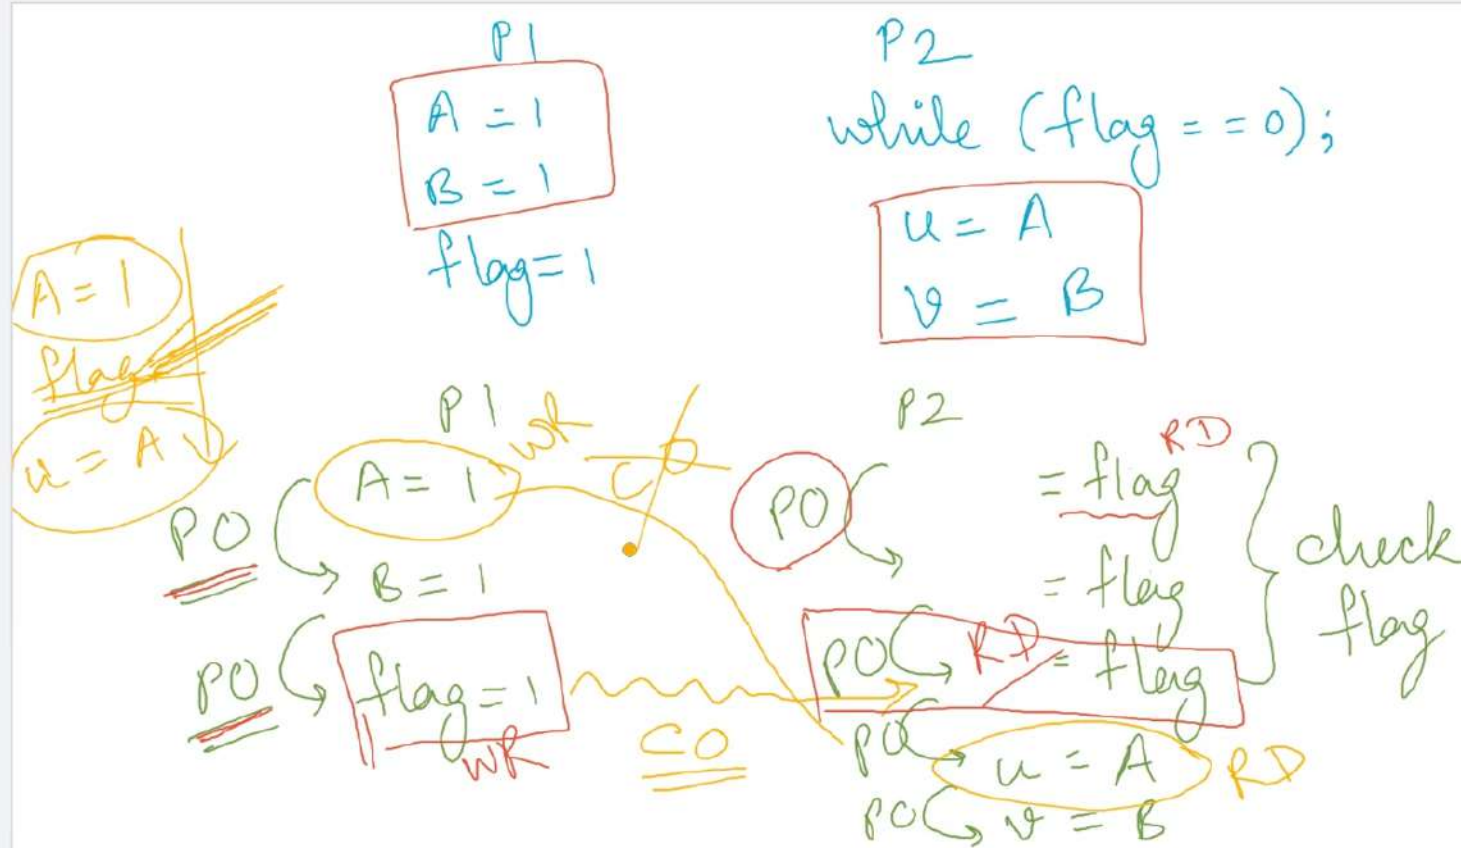 P1
A = 1
B = 1
flag = 1
P2
while (flag == 0);
u = A
v = B
A = 1
flag
u = A
P1
A = 1
WR
PO
B = 1
PO
flag = 1
WR
CO
CO
P2
PO
= flag
RD
= flag
PO
RD
= flag
check
flag
PO
u = A
RD
PO
v = B